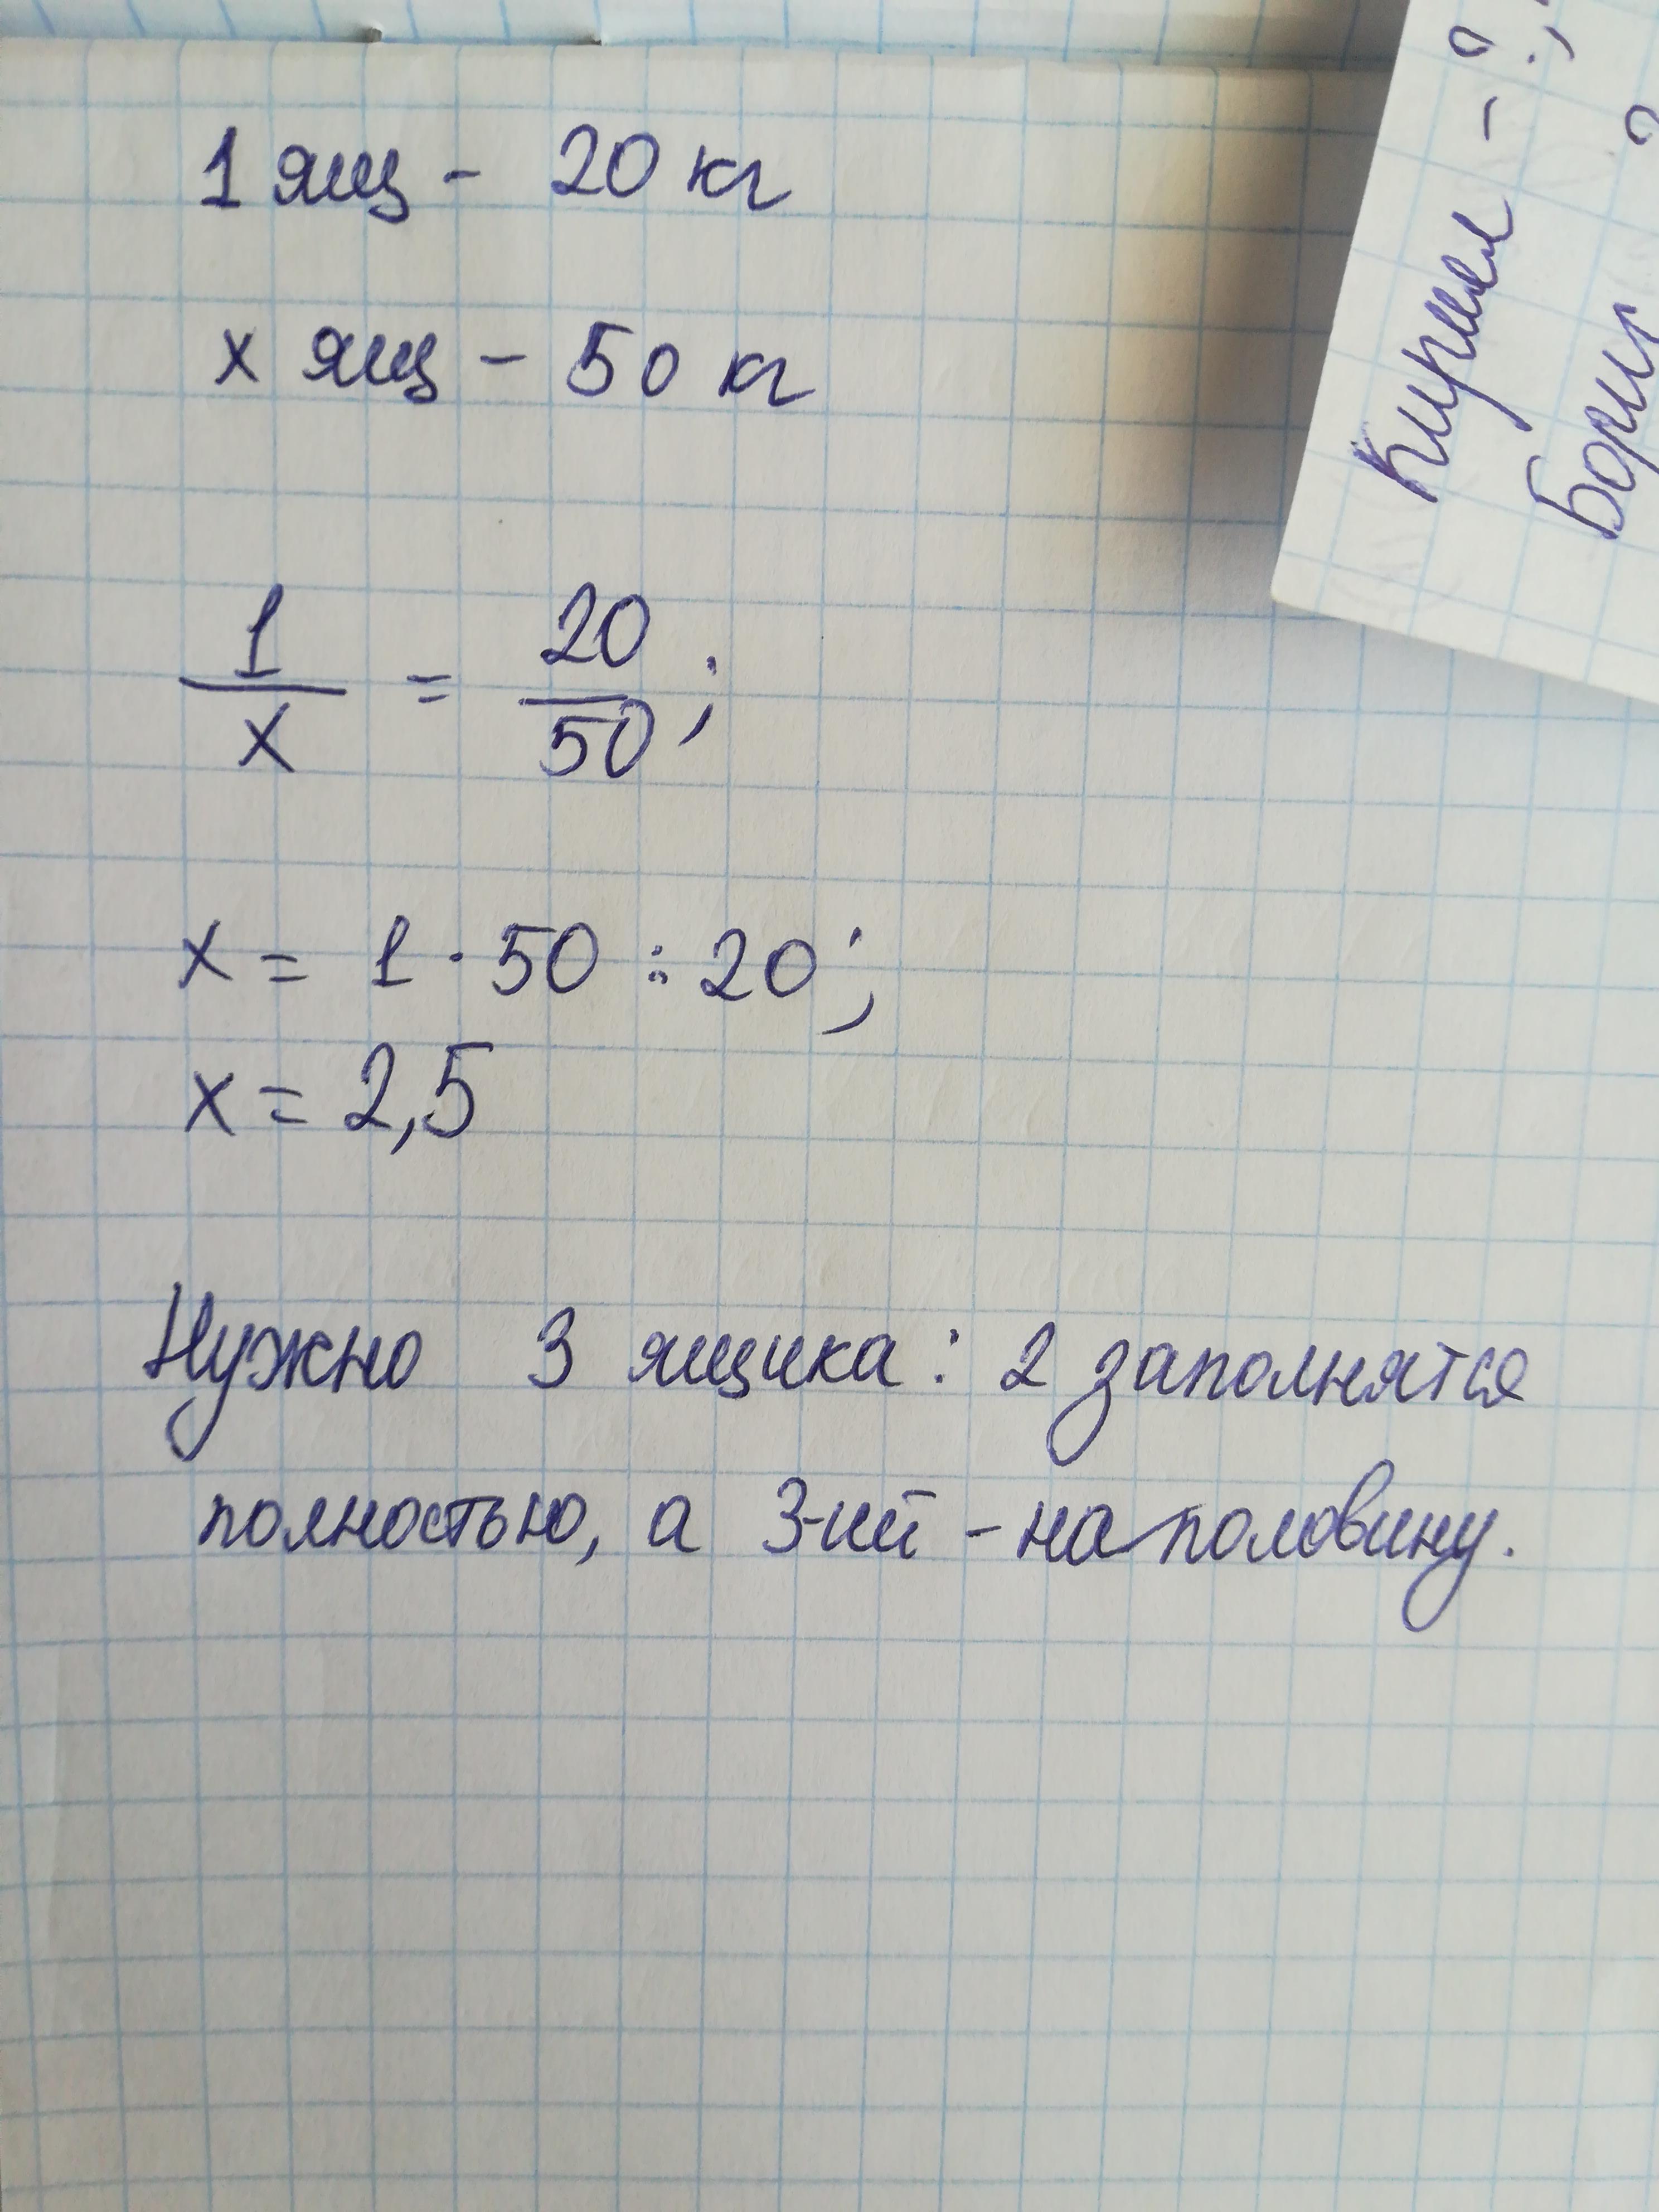 1 ящ - 20 кг
х ящ - 50 кг
1/х = 20/50;
х = 1 · 50 : 20;
х = 2,5
Нужно 3 ящика: 2 заполнятся
полностью, а 3-ий - наполовину.
Кирилл - ?,
Борис ?